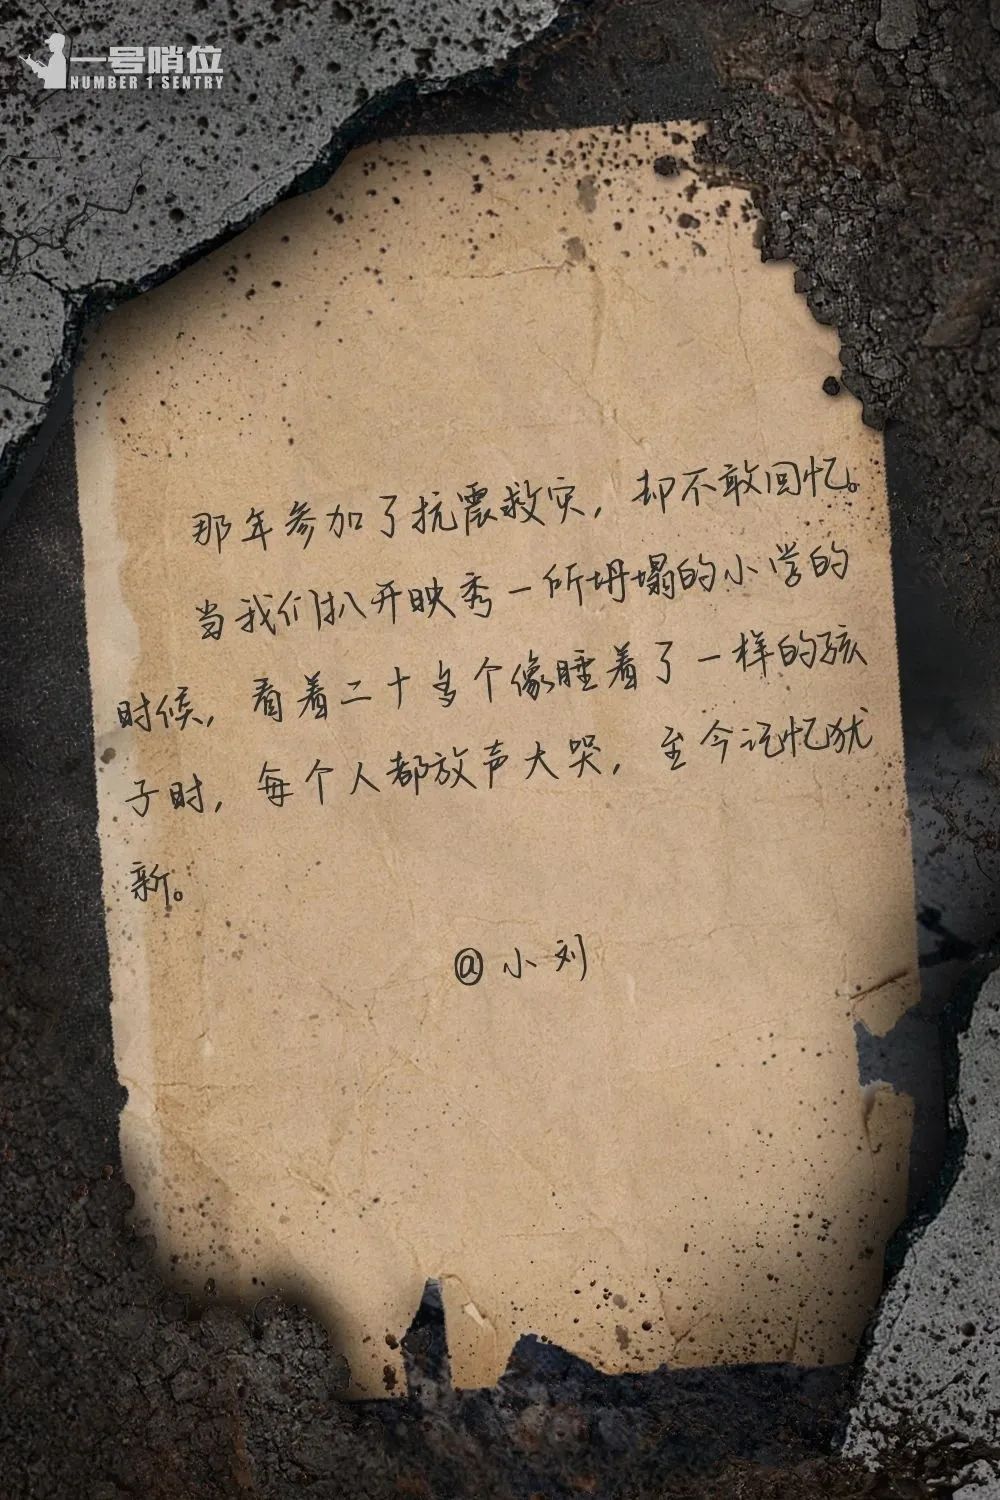 一号哨位
NUMBER 1 SENTRY
那年参加了抗震救灾，却不敢回忆。
当我们扒开映秀一所坍塌的小学的
时候，看着二十多个像睡着了一样的孩
子时，每个人都放声大哭，至今记忆犹
新。
@小刘